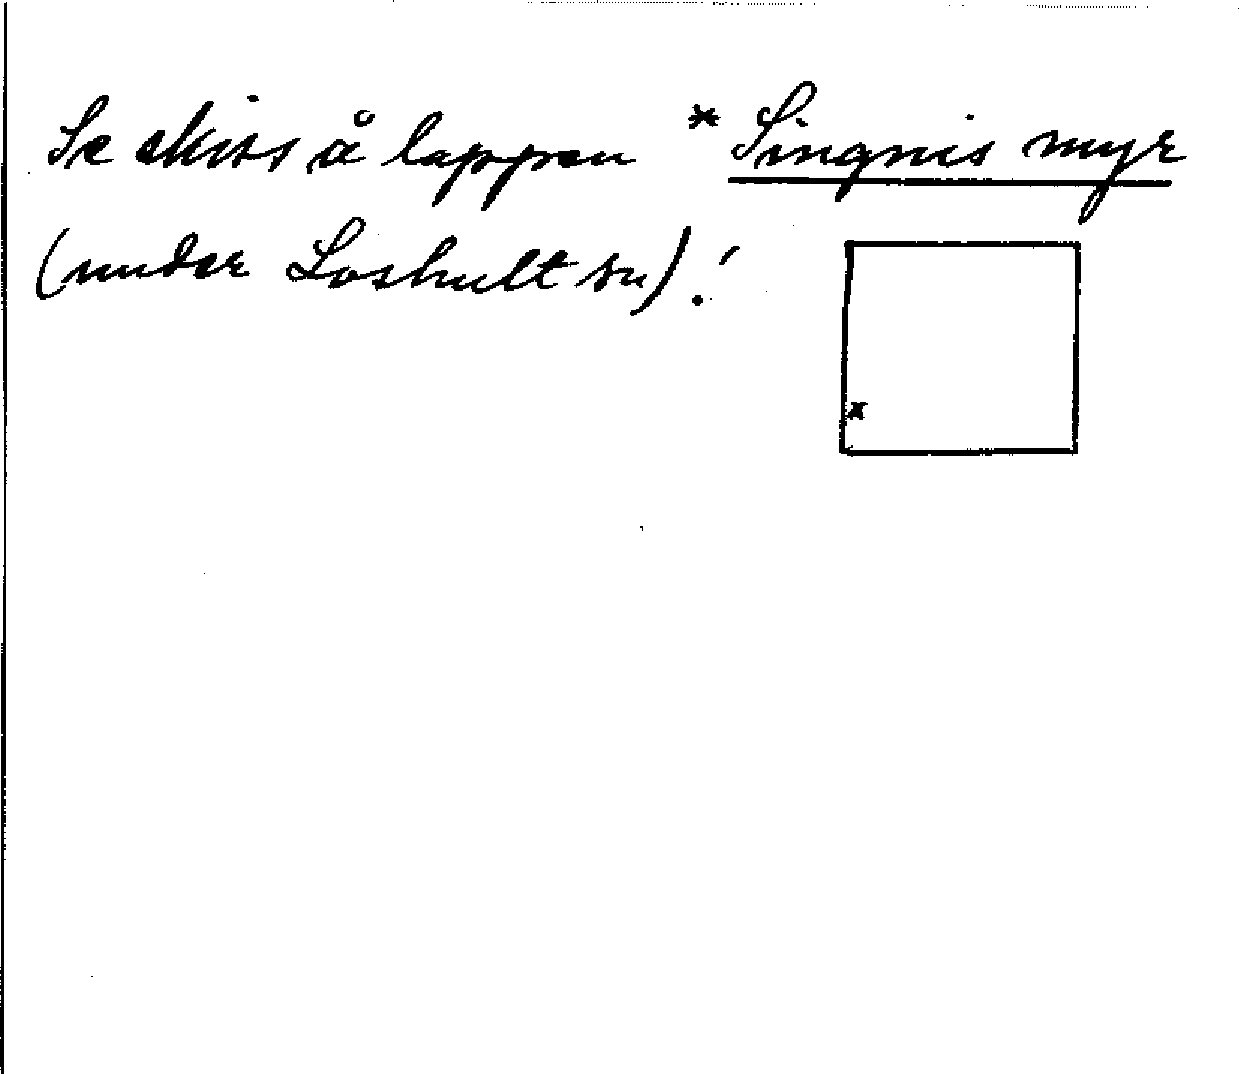 Se skiss å lappen * Singnis myr
(under Loshult sn).!
x